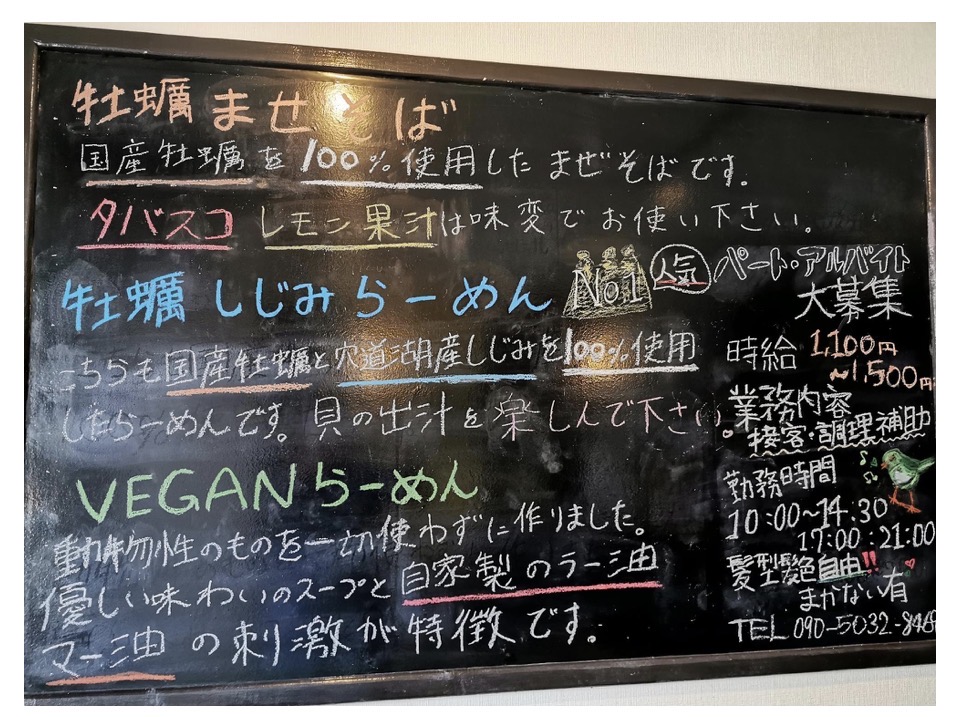 牡蠣ませそば
国産牡蠣を100%使用したまぜそばです。
タバスコ レモン果汁は味変でお使い下さい。
牡蠣しじみらーめん
No.1
人気
こちらも国産牡蠣と宍道湖産しじみを100%使用
したらーめんです。貝の出汁を楽しんで下さい。
VEGANらーめん
動物性のものを一切使わずに作りました。
優しい味わいのスープと自家製のラー油
マー油の刺激が特徴です。
パート・アルバイト
大募集
時給 1,100円
~1,500円
業務内容
接客・調理補助
勤務時間
10:00~14:30
17:00:21:00
髪型髪色自由!!
まかない有
TEL 090-5032-846